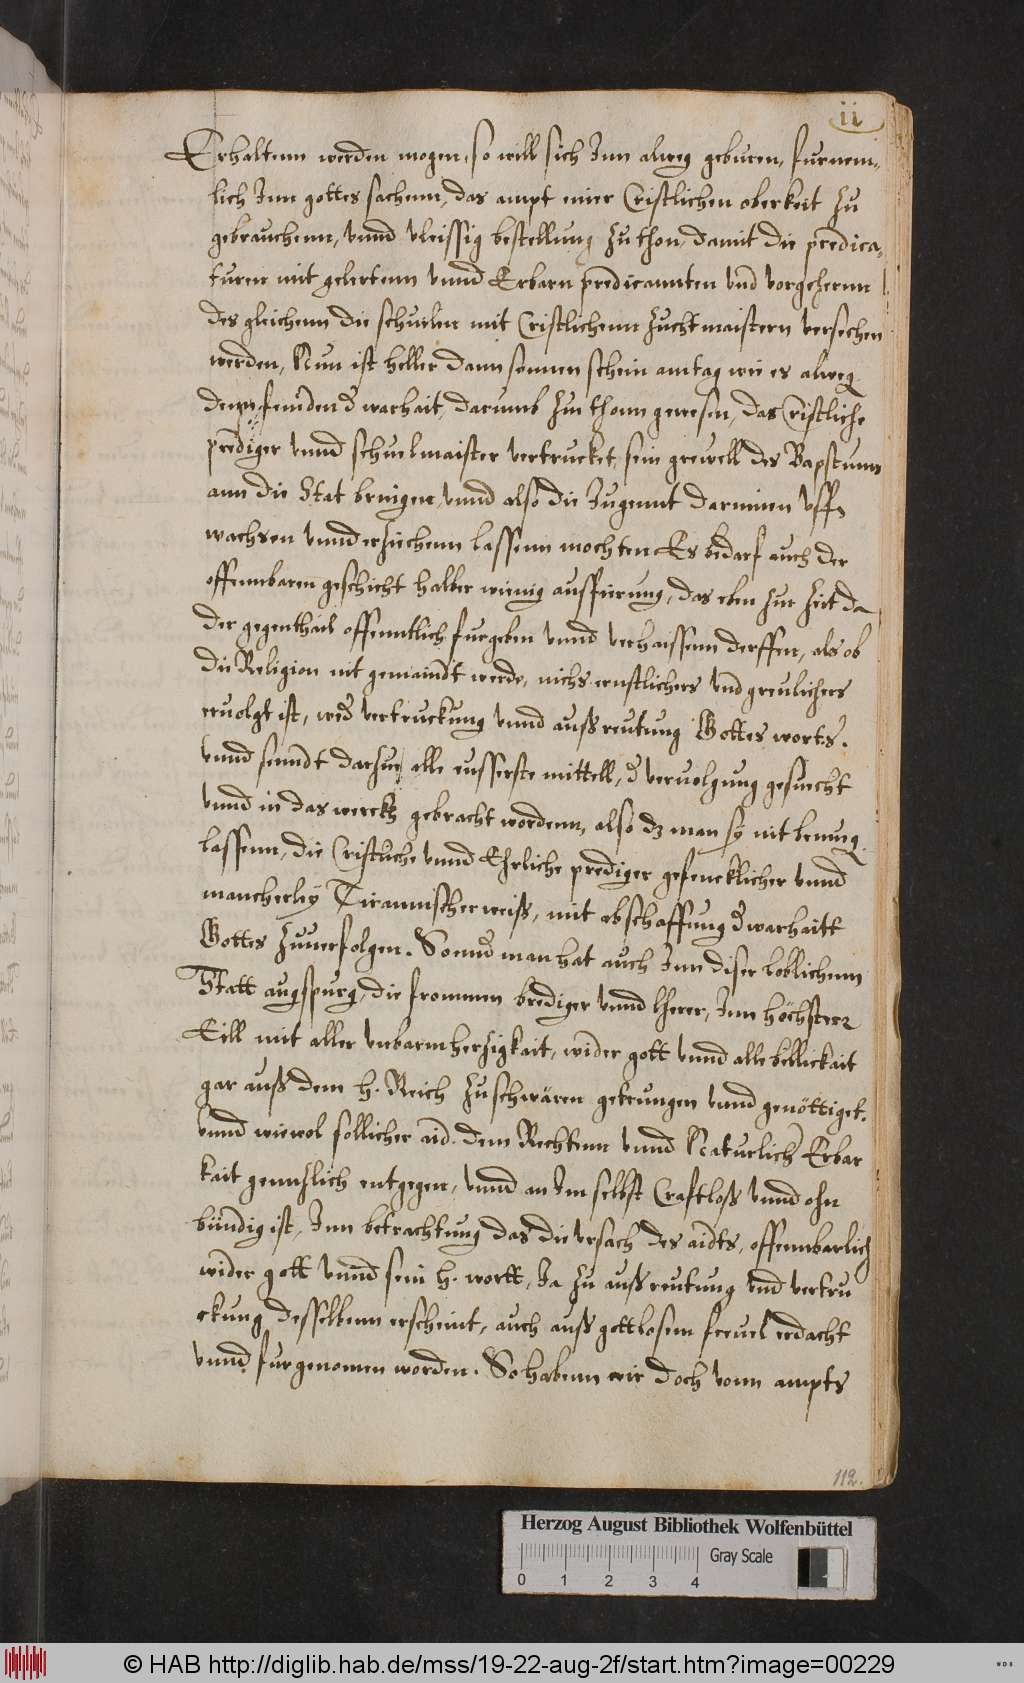 ii
Erhaltenn werden mogen, so will sich Inn alweg geburen, furnem-
lich Inn gottes sachenn, das ampt einer Cristlichen oberkeit zu
gebrauchenn, vnnd vleissig bestellung zu thon, damit die predica-
turen mit gelertenn vnnd Erbarn predicannten vnd vorgehernn
des gleichenn die schuelen mit Cristlichenn zuchtmaistern versechen
werden, Nun ist heller dann sonnen schein am tag wie es alweg
denn feinden d warhait, darumb zu thonn gewesen, das Cristliche
prediger vnnd schuelmaister vertrucket, sein grewell des Bapstumm
ann die Stat bringen, vnnd also die Jugennt darinnen vff
wachsen vnnd erziechenn lassenn mochten Es bedarf auch der
offennbaren geschicht halber wienig ausfierung, das eben zur Zeit da
der gegenthail offenntlich furgeben vnnd verhaissenn derffen, als ob
die Religion nit gemaindt werde, nichs ernstlichers vnd greulichers
ervolgt ist, wed vertruckung vnnd außreutung Gottes worts.
vnnd senndt darzue alle eusserste mittell, d vervolgung gesuecht
vnnd in das werckh gebracht wordenn, also dz man sy nit benueg
lassenn, die Cristliche vnnd Ehrliche prediger gefencklicher vnnd
mancherley Tirannischer weiß, mit abschaffung d warhaitt
Gottes zuuerfolgen. Sonnd man hat auch Inn diser loblichenn
Statt augspurg, die frommen brediger vnnd lherer, Inn höchster
Eill mit aller vnbarmherzigkait, wider gott vnnd alle billickait
gar auß dem h. Reich zuschwären getrungen vnnd genöttiget.
vnnd wiewol sollicher aid dem Rechtenn vnnd Naturlich Erbar
kait gennzlich entgegen, vnnd an Im selbst Crafftloß vnnd ohn
bündig ist, Inn betrachtung das die vrsach des aidts, offennbarlich
wider gott vnnd sein h. wortt, Ja zu außreutung vnd vertru
ckung desselbenn erscheint, auch auß gottlosem frevel erdacht
vnnd furgenomen worden. So habenn wir doch vonn ampts
112.
Herzog August Bibliothek Wolfenbüttel
Gray Scale
0 1 2 3 4
© HAB http://diglib.hab.de/mss/19-22-aug-2f/start.htm?image=00229